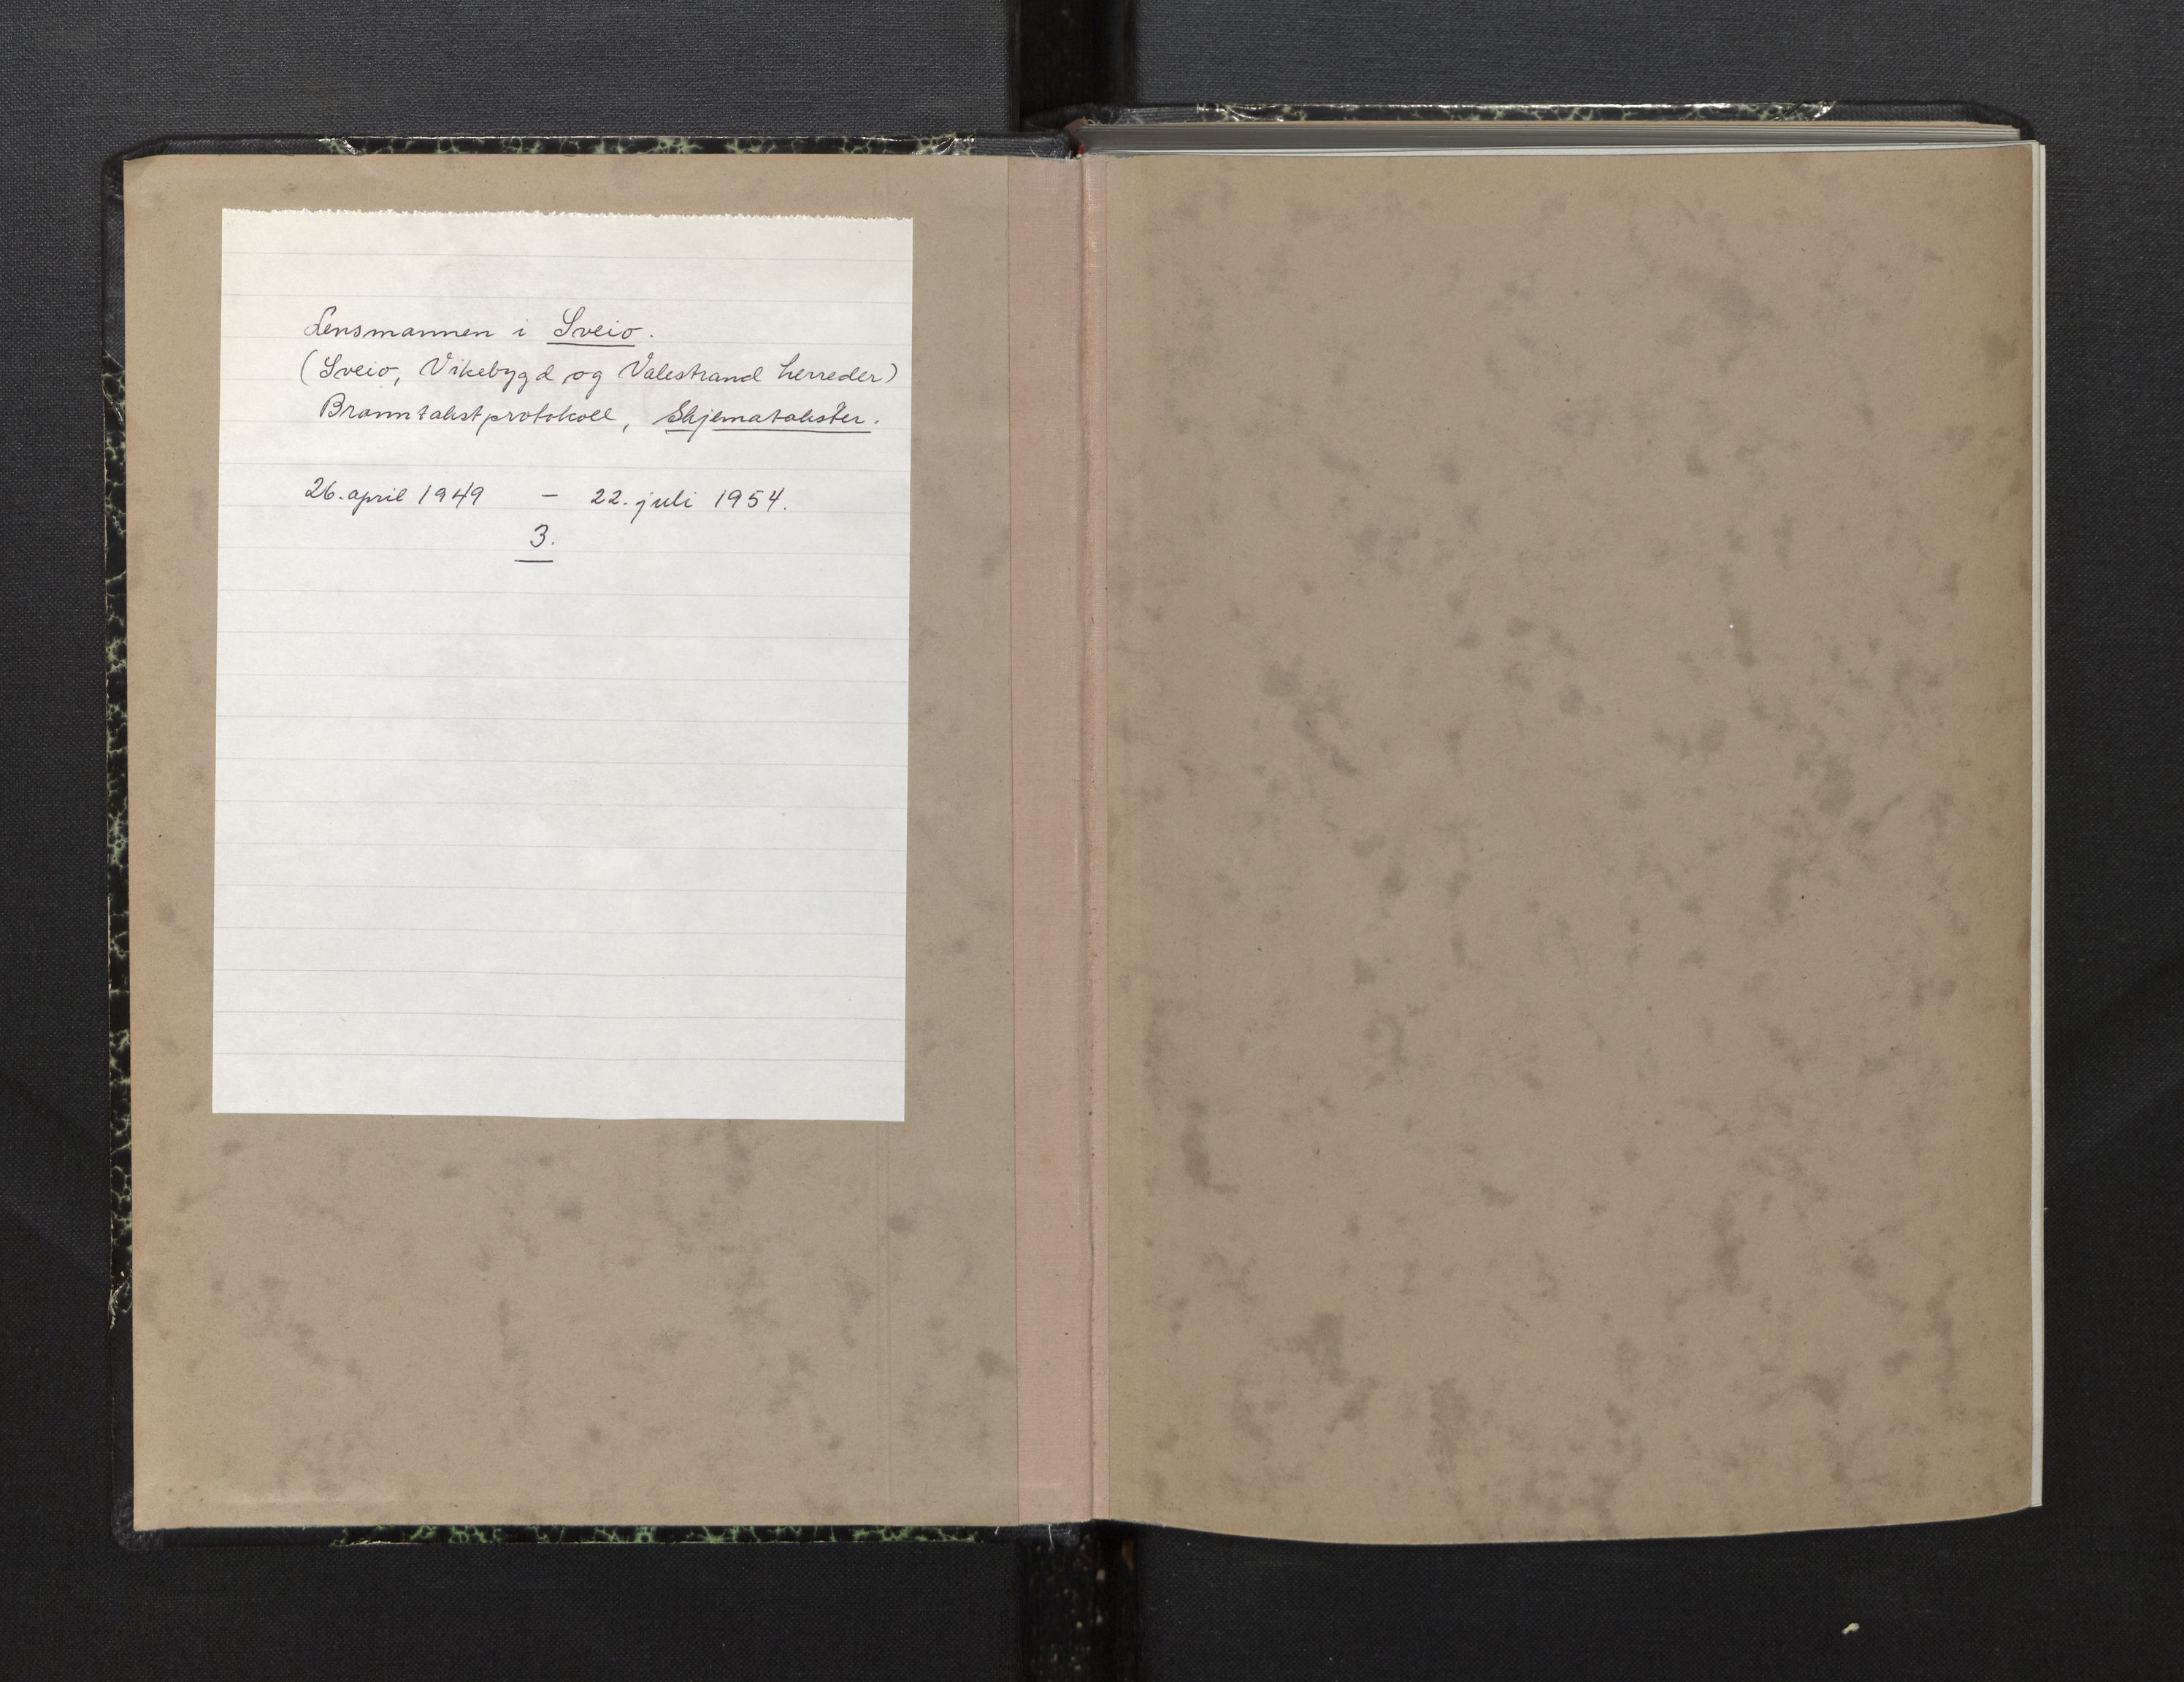 Lensmannen i Sveio.
(Sveio, Vikebygd og Valestrand herreder)
Branntakstprotokoll, Skjematakster.
26. april 1949 – 22. juli 1954.
3.